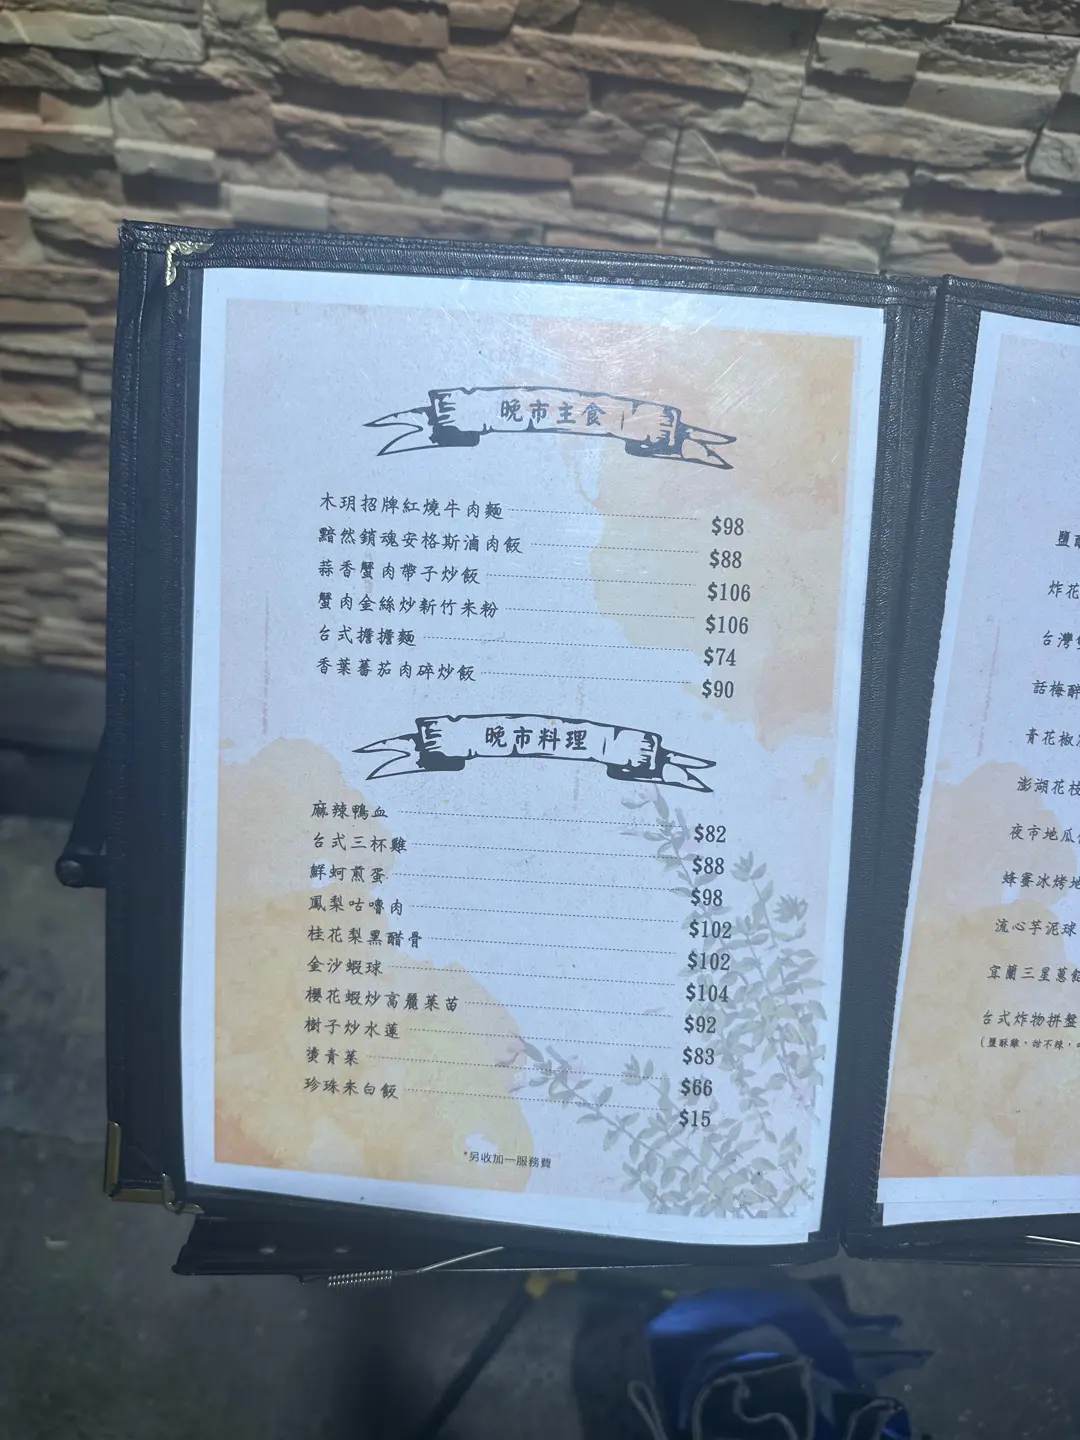 晚市主食
木玥招牌紅燒牛肉麵 $98
黯然銷魂安格斯滷肉飯 $88
蒜香蟹肉帶子炒飯 $106
蟹肉金絲炒新竹米粉 $106
台式擔擔麵 $74
香葉蕃茄肉碎炒飯 $90
晚市料理
麻辣鴨血 $82
台式三杯雞 $88
鮮蚵煎蛋 $98
鳳梨咕嚕肉 $102
桂花梨黑醋骨 $102
金沙蝦球 $104
櫻花蝦炒高麗菜苗 $92
樹子炒水蓮 $83
燙青菜 $66
珍珠米白飯 $15
*另收加一服務費
鹽酥
炸花
台灣
話梅醉
青花椒
澎湖花枝
夜市地瓜
蜂蜜冰烤地
流心芋泥球
宜蘭三星蔥
台式炸物拼盤
(鹽酥雞，甜不辣，